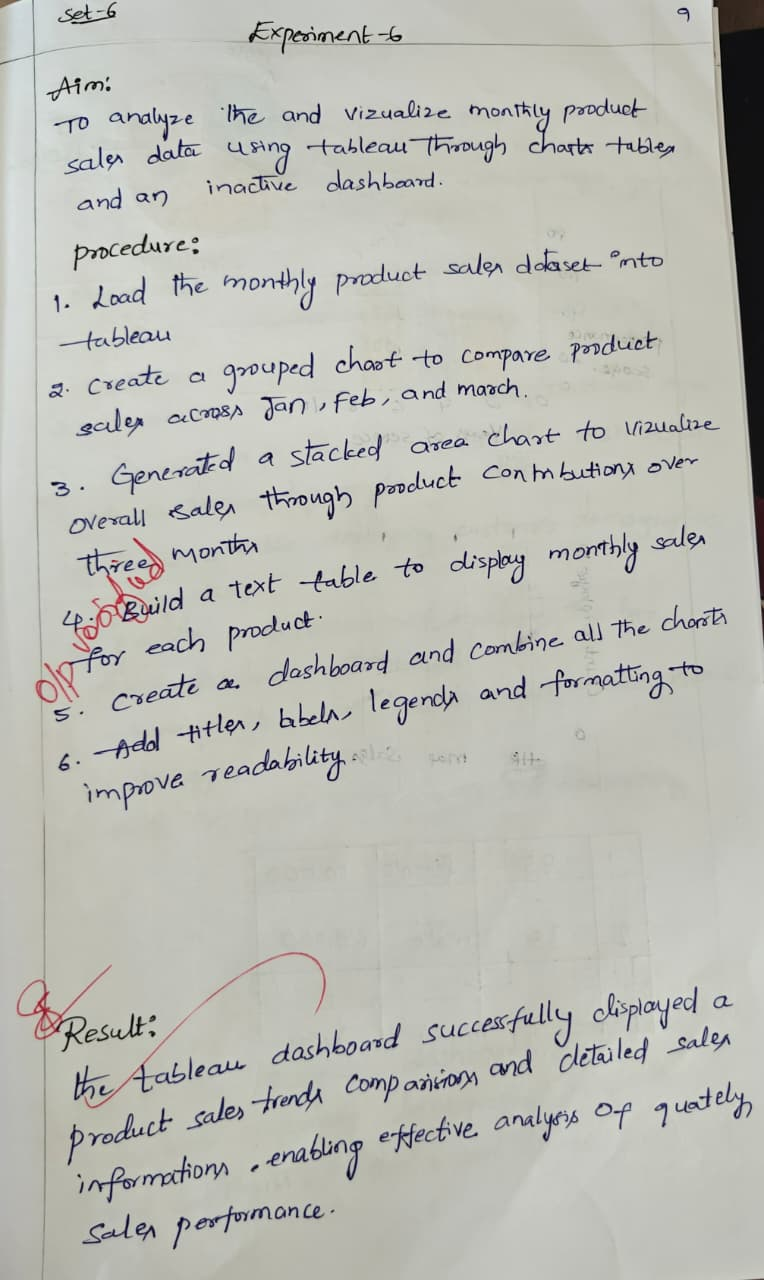 Set-6
9
Experiment-6
Aim:
To analyze the and vizualize monthly product
sales data using tableau through charts tables
and an inactive dashboard.
procedure:
1. Load the monthly product sales dataset into
tableau
2. Create a grouped chart to compare product
sales across Jan, Feb, and march.
3. Generated a stacked area chart to vizualize
overall sales through product contributions over
three months
4. Build a text table to display monthly sales
for each product.
O/P verified
5. Create a dashboard and combine all the charts
6. Add titles, labels, legends and formatting to
improve readability
Result:
the tableau dashboard successfully displayed a
product sales trends comparisions and detailed sales
informations. enabling effective analysis of quately,
sales performance.